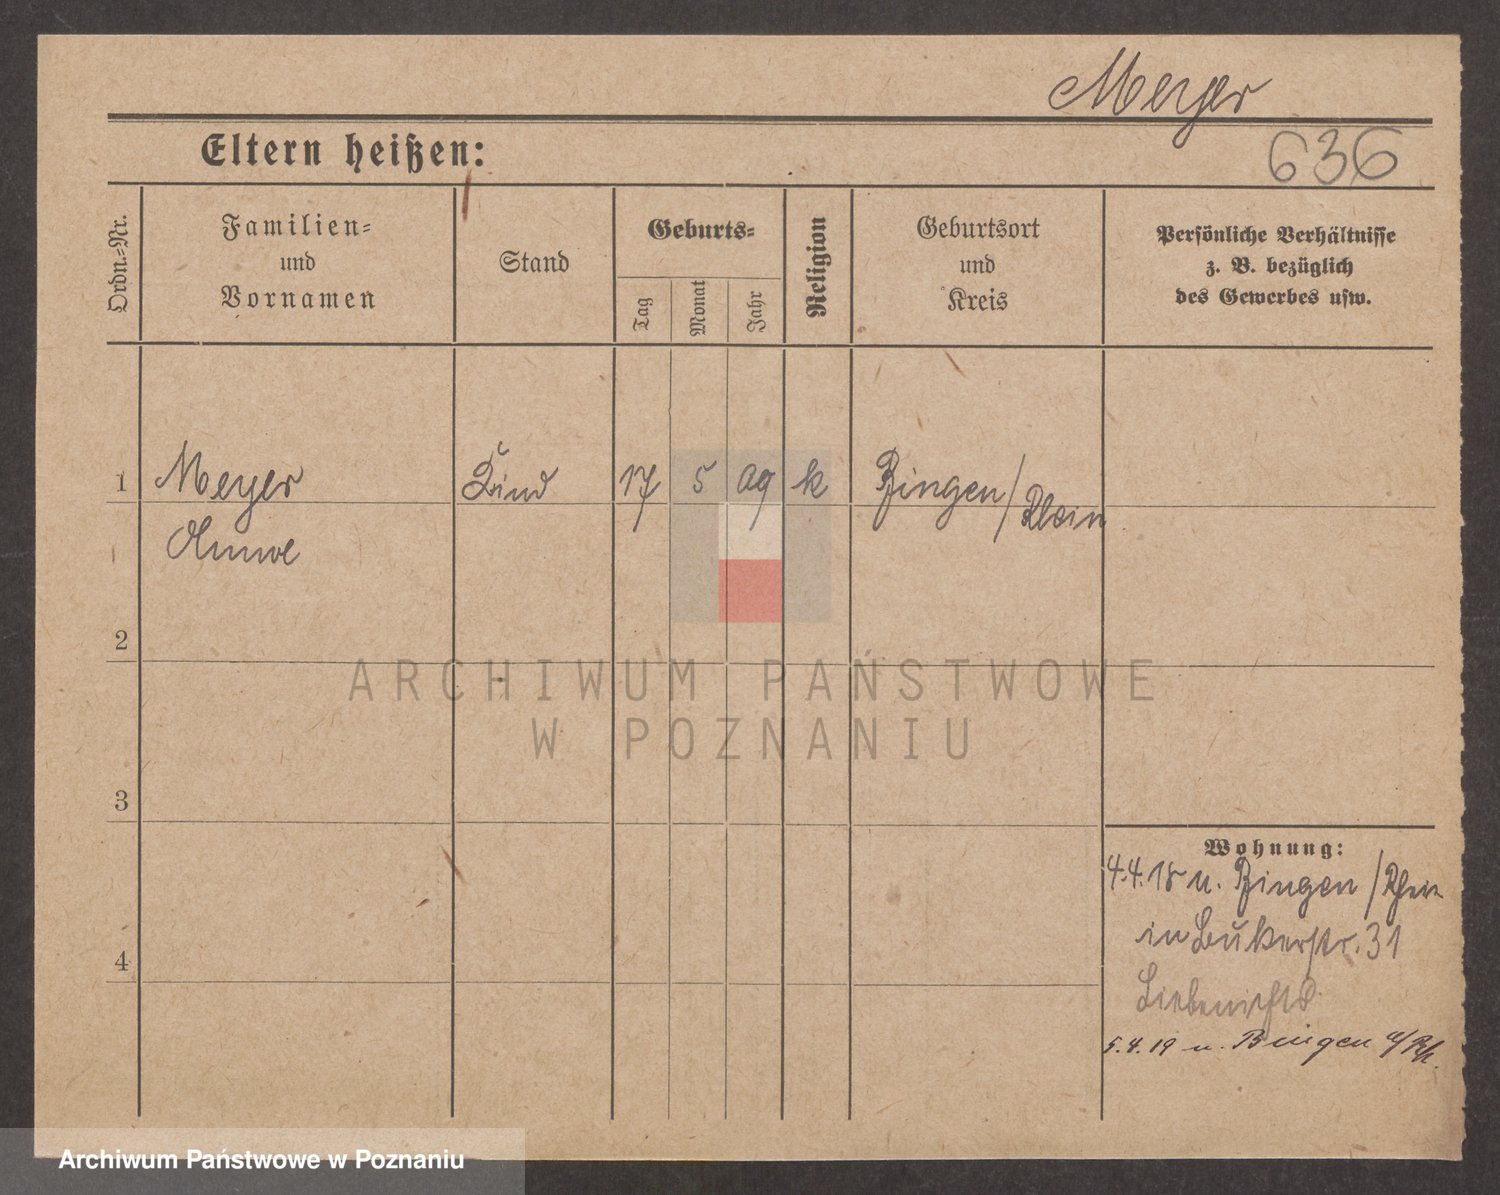 Meyer
636
Eltern heißen:
Ordn.=Nr.
Familien=
und
Vornamen
Stand
Geburts=
Tag
Monat
Jahr
Religion
Geburtsort
und
Kreis
Persönliche Verhältnisse
z. B. bezüglich
des Gewerbes usw.
1
Meyer
Kind
17
5
09
k
Bingen/Rhein
2
ARCHIWUM PAŃSTWOWE
W POZNANIU
3
Wohnung:
4.4.18 u. Bingen/Rhein
in Bukerstr. 31
4
5.4.19 u. Bingen a/Rh.
Archiwum Państwowe w Poznaniu